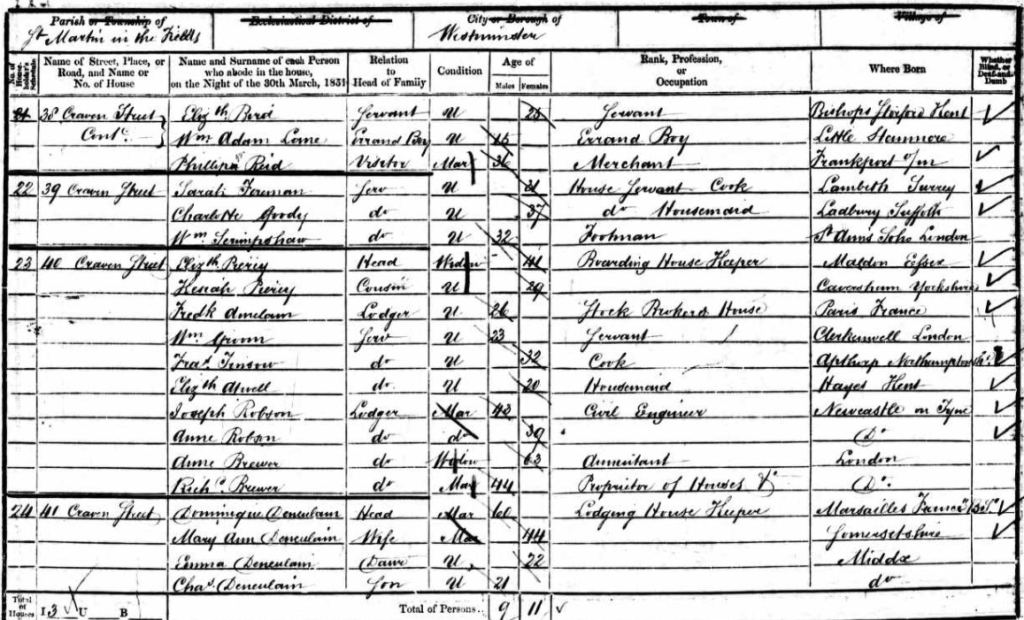 Parish or Township of Ecclesiastical District of City or Borough of Town of Village of
St Martin in the Fields Westminster
No. of House-holder's Schedule Name of Street, Place, or Road, and Name or No. of House Name and Surname of each Person who abode in the house, on the Night of the 30th March, 1851 Relation to Head of Family Condition Age of Males Females Rank, Profession, or Occupation Where Born Whether Blind, or Deaf-and-Dumb
38 Craven Street Elizth Bird Servant U 25 Servant Bishops Kent
Contd Wm Adam Lorne Errand Boy U 15 Errand Boy Little Stanmore
Phillips Reid Visitor Mar 36 Merchant Frankport o/m
22 39 Craven Street Sarah Serv U 31 House Servant Cook Lambeth Surrey
Charlotte Goody do U 37 do Housemaid Ladbury Suffolk
Wm Scrimpshaw do U 32 Footman St Anns Soho London
23 40 Craven Street Elizth Piercy Head Widow 41 Boarding House Keeper Maldon Essex
Piercy Cousin U 29 Caversham Yorkshire
Fredk Amelain Lodger U 26 Stock Brokers House Paris France
Wm Groom Serv U 23 Servant Clerkenwell London
Fras Tinson do U 32 Cook Apthorp
Elizth Atwell do U 20 Housemaid Hayes Kent
Joseph Robson Lodger Mar 42 Civil Engineer Newcastle on Tyne
Anne Robson do do 39 Do
Anne Brewer do Widow 63 Annuitant London
Richd Brewer do Mar 44 Proprietor of Houses Do
24 41 Craven Street Dominique Deneulain Head Mar 60 Lodging House Keeper Marsailles France B.S.
Mary Ann Deneulain Wife Mar 44 Somersetshire
Emma Deneulain Daur U 22 Middx
Chas Deneulain Son U 21 do
Total of Houses I 3 U B Total of Persons.. 9 11